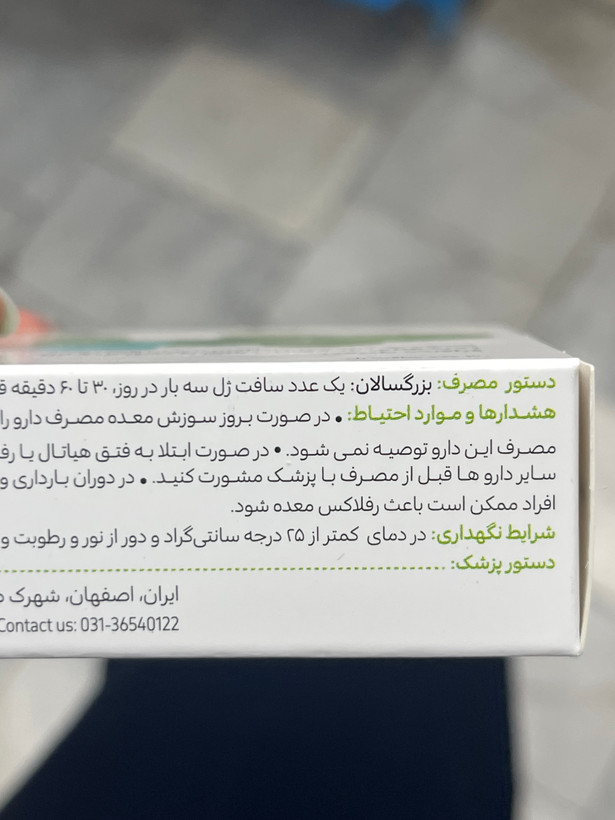 دستور مصرف: بزرگسالان: یک عدد سافت ژل سه بار در روز، ۳۰ تا ۶۰ دقیقه
هشدارها و موارد احتیاط: • در صورت بروز سوزش معده مصرف دارو را
مصرف این دارو توصیه نمی شود. • در صورت ابتلا به فتق هیاتال یا
سایر دارو ها قبل از مصرف با پزشک مشورت کنید. • در دوران بارداری و
افراد ممکن است باعث رفلاکس معده شود.
شرایط نگهداری: در دمای کمتر از ۲۵ درجه سانتی‌گراد و دور از نور و رطوبت و
دستور پزشک:
ایران، اصفهان، شهرک
Contact us: 031-36540122